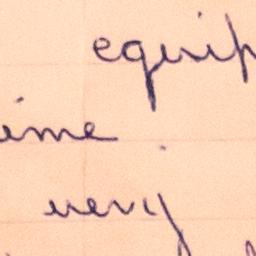 equip
ime
very